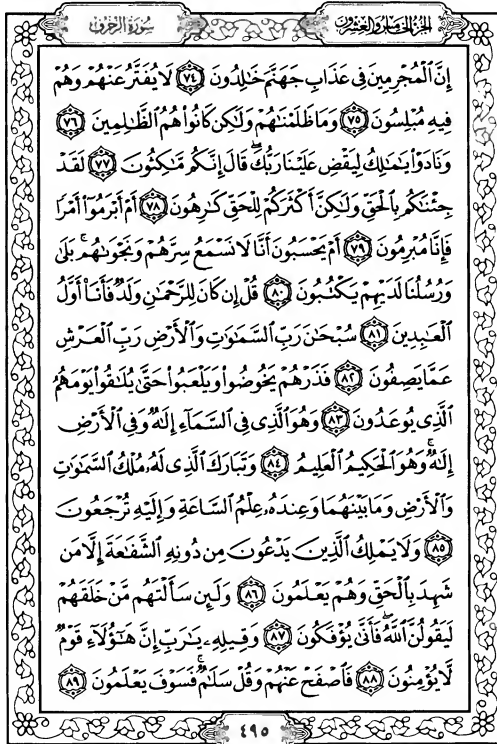 الجزء الخامس والعشرون
سورة الزخرف
إِنَّ الْمُجْرِمِينَ فِي عَذَابِ جَهَنَّمَ خَٰلِدُونَ ٧٤ لَا يُفَتَّرُ عَنْهُمْ وَهُمْ
فِيهِ مُبْلِسُونَ ٧٥ وَمَا ظَلَمْنَٰهُمْ وَلَٰكِن كَانُوا۟ هُمُ الظَّٰلِمِينَ ٧٦
وَنَادَوْا۟ يَٰمَٰلِكُ لِيَقْضِ عَلَيْنَا رَبُّكَ ۖ قَالَ إِنَّكُم مَّٰكِثُونَ ٧٧ لَقَدْ
جِئْنَٰكُم بِالْحَقِّ وَلَٰكِنَّ أَكْثَرَكُمْ لِلْحَقِّ كَٰرِهُونَ ٧٨ أَمْ أَبْرَمُوٓا۟ أَمْرًا
فَإِنَّا مُبْرِمُونَ ٧٩ أَمْ يَحْسَبُونَ أَنَّا لَا نَسْمَعُ سِرَّهُمْ وَنَجْوَىٰهُم ۚ بَلَىٰ
وَرُسُلُنَا لَدَيْهِمْ يَكْتُبُونَ ٨٠ قُلْ إِن كَانَ لِلرَّحْمَٰنِ وَلَدٌ فَأَنَا۠ أَوَّلُ
الْعَٰبِدِينَ ٨١ سُبْحَٰنَ رَبِّ السَّمَٰوَٰتِ وَالْأَرْضِ رَبِّ الْعَرْشِ
عَمَّا يَصِفُونَ ٨٢ فَذَرْهُمْ يَخُوضُوا۟ وَيَلْعَبُوا۟ حَتَّىٰ يُلَٰقُوا۟ يَوْمَهُمُ
الَّذِي يُوعَدُونَ ٨٣ وَهُوَ الَّذِي فِي السَّمَآءِ إِلَٰهٌ وَفِي الْأَرْضِ
إِلَٰهٌ ۚ وَهُوَ الْحَكِيمُ الْعَلِيمُ ٨٤ وَتَبَارَكَ الَّذِي لَهُۥ مُلْكُ السَّمَٰوَٰتِ
وَالْأَرْضِ وَمَا بَيْنَهُمَا وَعِندَهُۥ عِلْمُ السَّاعَةِ وَإِلَيْهِ تُرْجَعُونَ
٨٥ وَلَا يَمْلِكُ الَّذِينَ يَدْعُونَ مِن دُونِهِ الشَّفَٰعَةَ إِلَّا مَن
شَهِدَ بِالْحَقِّ وَهُمْ يَعْلَمُونَ ٨٦ وَلَئِن سَأَلْتَهُم مَّنْ خَلَقَهُمْ
لَيَقُولُنَّ اللَّهُ ۖ فَأَنَّىٰ يُؤْفَكُونَ ٨٧ وَقِيلِهِۦ يَٰرَبِّ إِنَّ هَٰٓؤُلَآءِ قَوْمٌ
لَّا يُؤْمِنُونَ ٨٨ فَاصْفَحْ عَنْهُمْ وَقُلْ سَلَٰمٌ ۚ فَسَوْفَ يَعْلَمُونَ ٨٩
٤٩٥